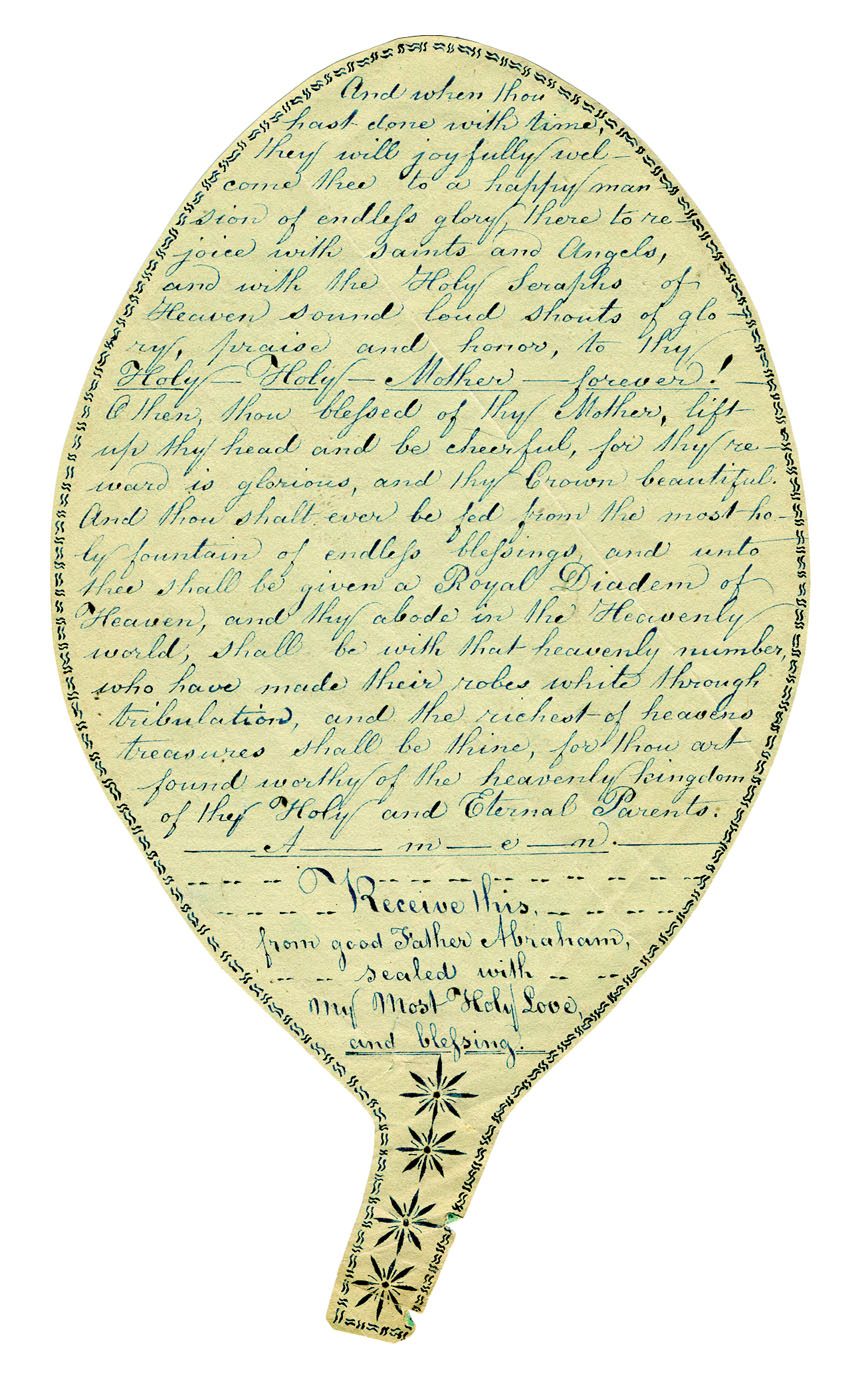 And when thou
hast done with time,
they will joyfully wel-
come thee to a happy man-
sion of endleſs glory, there to re-
joice with saints and Angels,
and with the Holy Seraphs of
Heaven sound loud shouts of glo-
ry, praise and honor, to thy
Holy— Holy— Mother — forever! —
O then, thou bleſsed of thy Mother, lift
up thy head and be cheerful, for thy re-
ward is glorious, and thy Crown beautiful.
And thou shalt ever be fed from the most ho-
ly fountain of endleſs bleſsings, and unto
thee shall be given a Royal Diadem of
Heaven, and thy abode in the Heavenly
world, shall be with that heavenly number,
who have made their robes white through
tribulation, and the richest of heavens
treasures shall be thine, for thou art
found worthy of the heavenly kingdom
of thy Holy and Eternal Parents.
—— A —— m — e — n. ——
Receive this,
from good Father Abraham,
sealed with
My Most Holy Love,
and bleſsing.